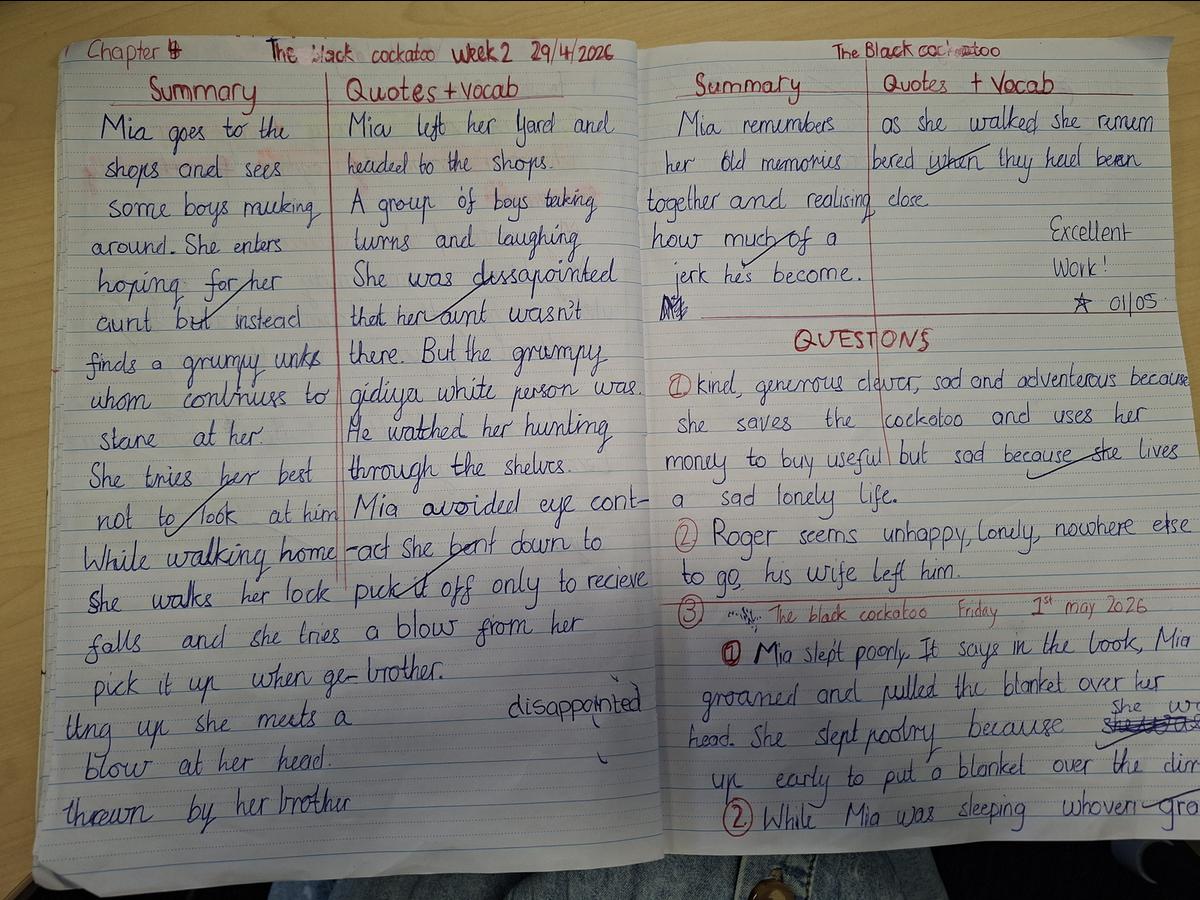 Chapter 4 The black cockatoo week 2 29/4/2026
Summary
Mia goes to the
shops and sees
some boys mucking
around. She enters
hoping for her
aunt but instead
finds a grumpy
whom continuss to
stare at her.
She tries her best
not to look at him
While walking home
She walks her lock
falls and she tries
pick it up when ge-
tting up she meets a
blow at her head.
thrown by her brother
Quotes + vocab
Mia left her Yard and
headed to the shops.
A group of boys taking
turns and laughing
She was dissapointed
that her aunt wasn't
there. But the grumpy
gidiya white person was.
He watched her hunting
through the shelves.
Mia avoided eye cont-
-act she bent down to
pick it off only to recieve
a blow from her
brother.
disappointed
The Black cockatoo
Summary
Mia remembers
her old memories
together and realising
how much of a
jerk he's become.
Quotes + Vocab
as she walked she remem
bered when they had been
close
Excellent
Work!
☆ 01/05
QUESTIONS
① kind, generous clever, sad and adventerous because
she saves the cockatoo and uses her
money to buy useful but sad because she lives
a sad lonely life.
② Roger seems unhappy, Lonely, nowhere else
to go, his wife left him.
③ The black cockatoo Friday 1st may 2026
① Mia slept poorly. It says in the book, Mia
groaned and pulled the blanket over her
head. She slept poolry because she
up early to put a blanket over the
② While Mia was sleeping